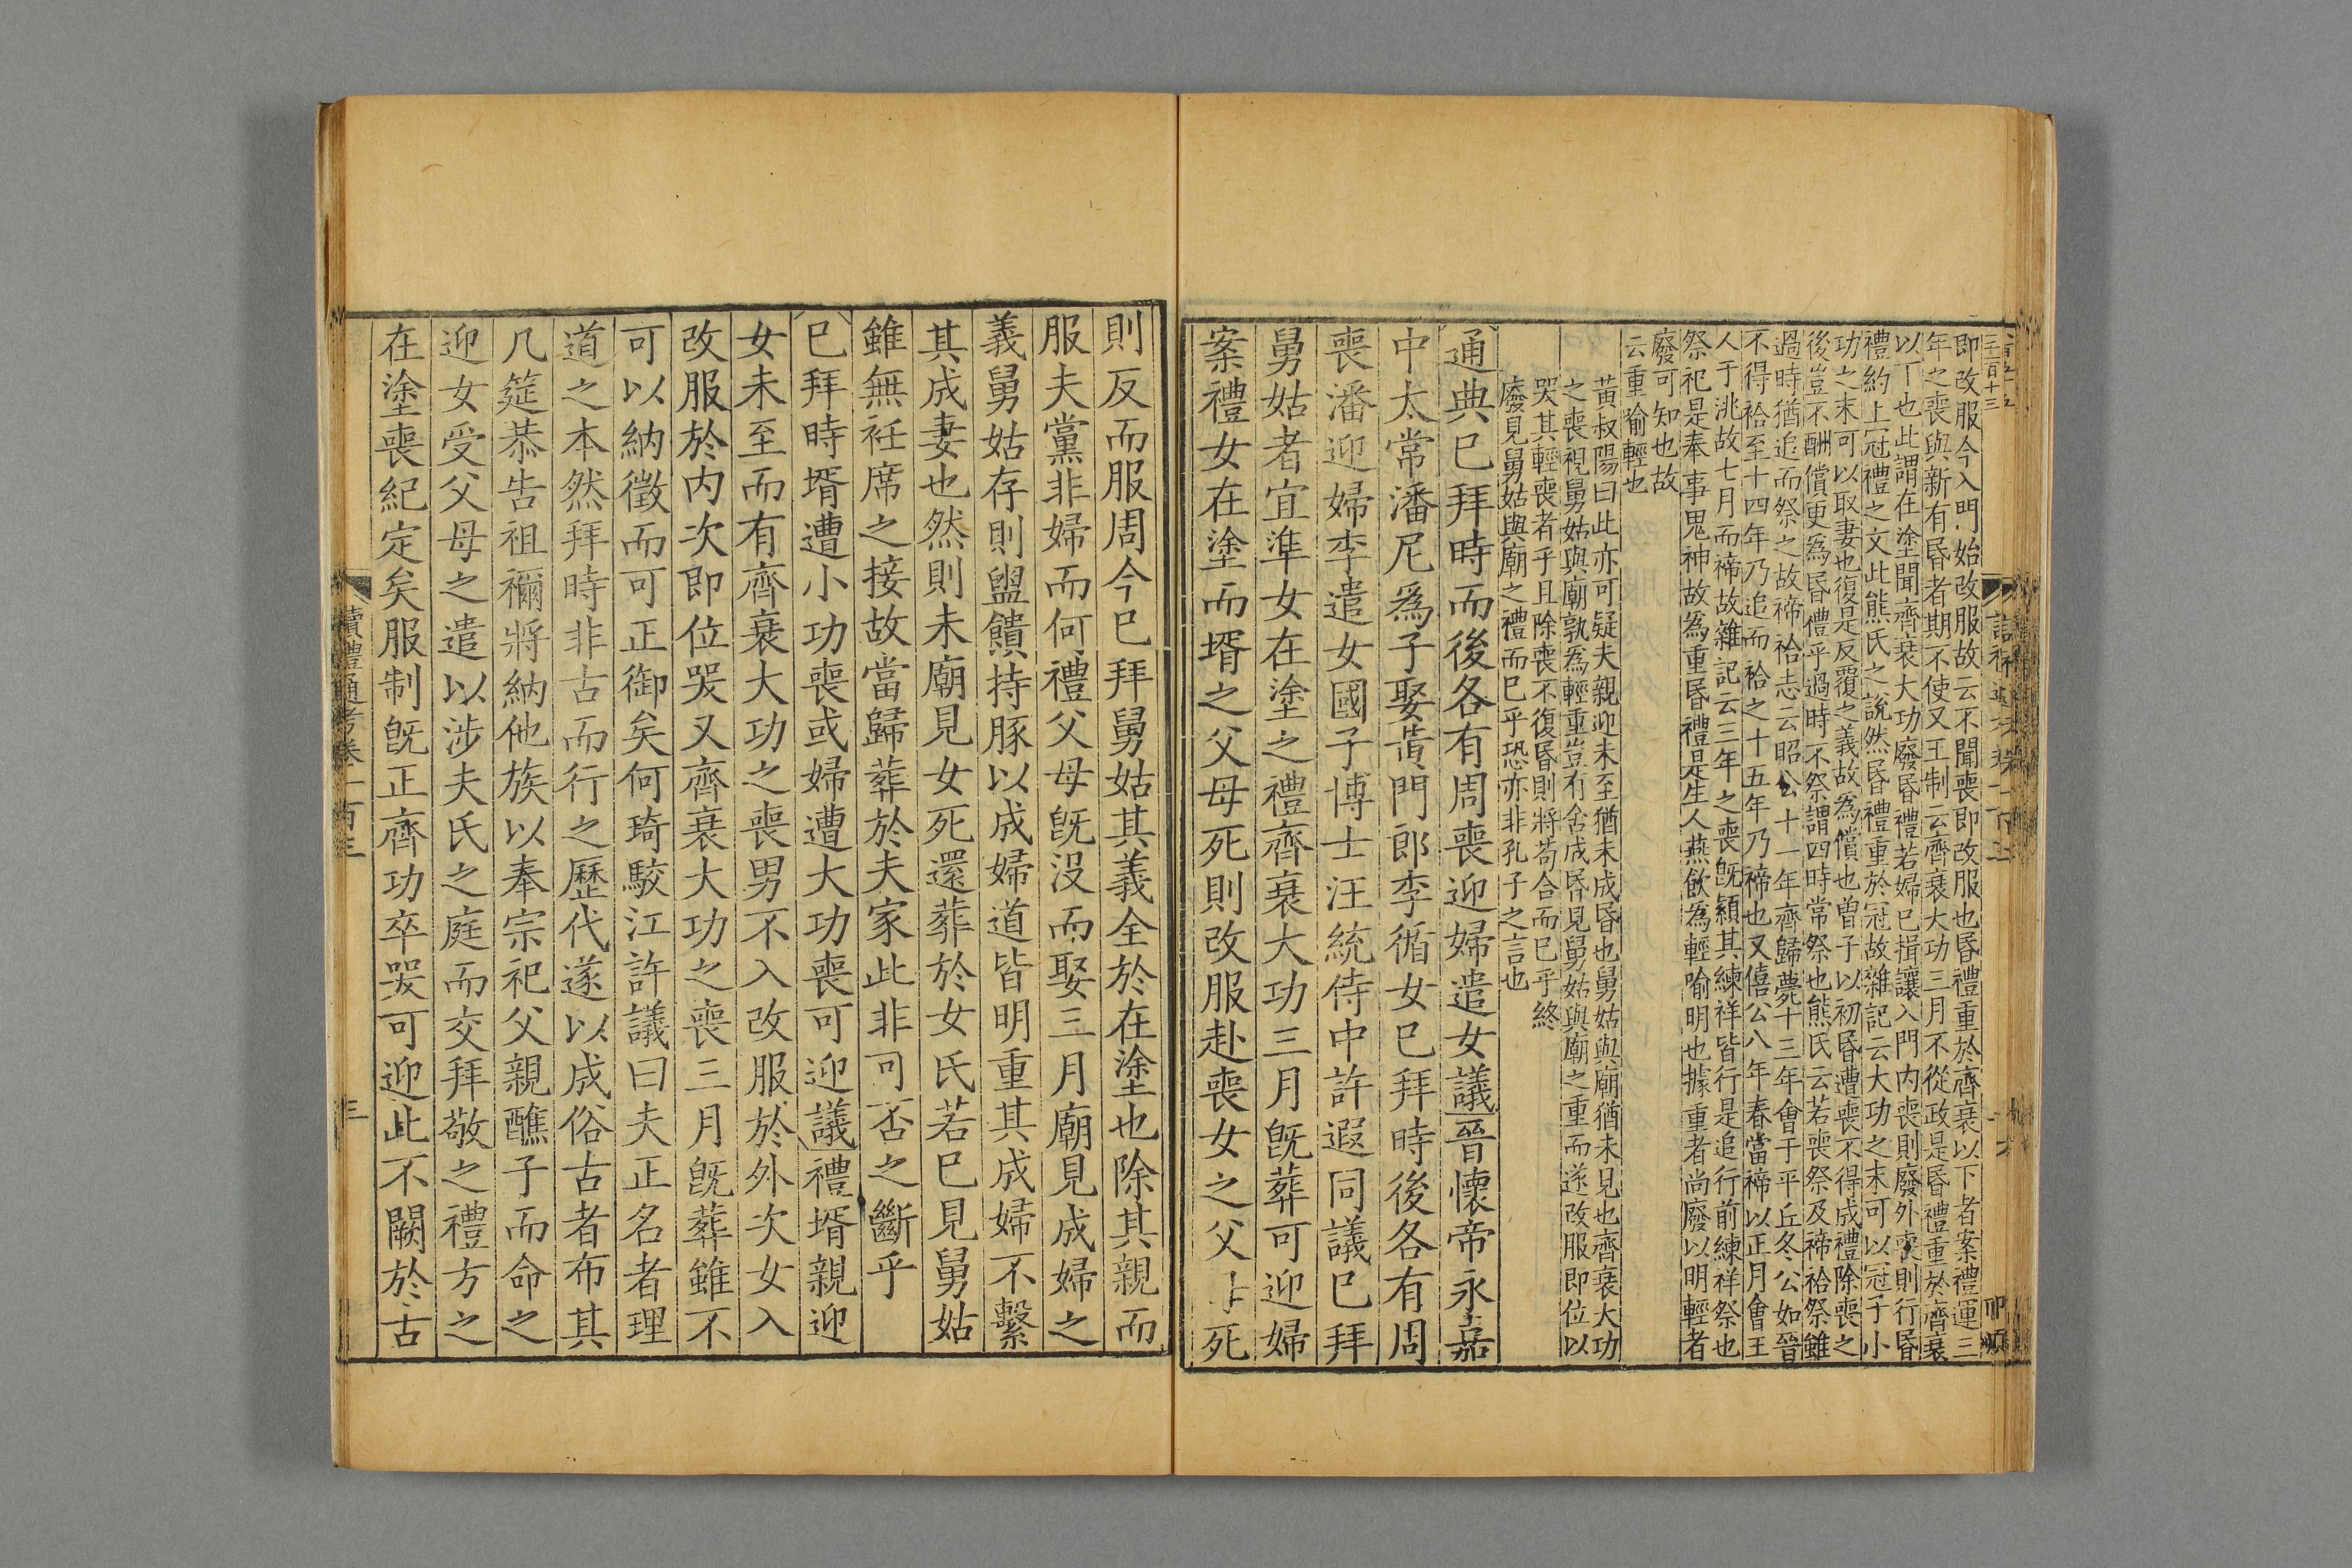 即改服今入門始改服故云不聞喪即改服也昏禮重於齊衰以下者案禮運三
年之喪與新有昏者期不使又王制云齊衰大功三月不從政是昏禮重於齊衰
以下也此謂在塗聞齊衰大功廢昏禮若婦已揖讓入門內喪則廢外喪則行昏
禮約上冠禮之文此熊氏之說然昏禮重於冠故雜記云大功之末可以冠子小
功之末可以取妻也復是反覆之義故為償也曾子以初昏遭喪不得成禮除喪之
後豈不酬償更為昏禮乎過時不祭謂四時常祭也熊氏云若喪祭及禘祫祭雖
過時猶追而祭之故禘祫志云昭公十一年齊歸薨十三年會于平丘冬公如晉
不得祫至十四年乃追而祫之十五年乃禘也又僖公八年春當禘以正月會王
人于洮故七月而禘故雜記云三年之喪既顈其練祥皆行是追行前練祥祭也
祭祀是奉事鬼神故為重昏禮是生人燕飲為輕喻明也據重者尚廢以明輕者
廢可知也故
云重喻輕也
黃叔陽曰此亦可疑夫親迎未至猶未成昏也舅姑與廟猶未見也齊衰大功
之喪視舅姑與廟孰為輕重豈有舍成昏見舅姑與廟之重而遂改服即位以
哭其輕喪者乎且除喪不復昏則將苟合而已乎終
廢見舅姑與廟之禮而已乎恐亦非孔子之言也
通典已拜時而後各有周喪迎婦遣女議晉懷帝永嘉
中太常潘尼為子娶黃門郎李循女已拜時後各有周
喪潘迎婦李遣女國子博士汪統侍中許遐同議已拜
舅姑者宜準女在塗之禮齊衰大功三月既葬可迎婦
案禮女在塗而壻之父母死則改服赴喪女之父死
則反而服周今已拜舅姑其義全於在塗也除其親而
服夫黨非婦而何禮父母既沒而娶三月廟見成婦之
義舅姑存則盥饋持豚以成婦道皆明重其成婦不繫
其成妻也然則未廟見女死還葬於女氏若已見舅姑
雖無衽席之接故當歸葬於夫家此非可否之斷乎
已拜時壻遭小功喪或婦遭大功喪可迎議禮壻親迎
女未至而有齊衰大功之喪男不入改服於外次女入
改服於內次即位哭又齊衰大功之喪三月既葬雖不
可以納徵而可正御矣何琦駮江許議曰夫正名者理
道之本然拜時非古而行之歷代遂以成俗古者布其
几筵恭告祖禰將納他族以奉宗祀父親醮子而命之
迎女受父母之遣以涉夫氏之庭而交拜敬之禮方之
在塗喪紀定矣服制既正齊功卒哭可迎此不闕於古
讀禮通考卷一百三
三